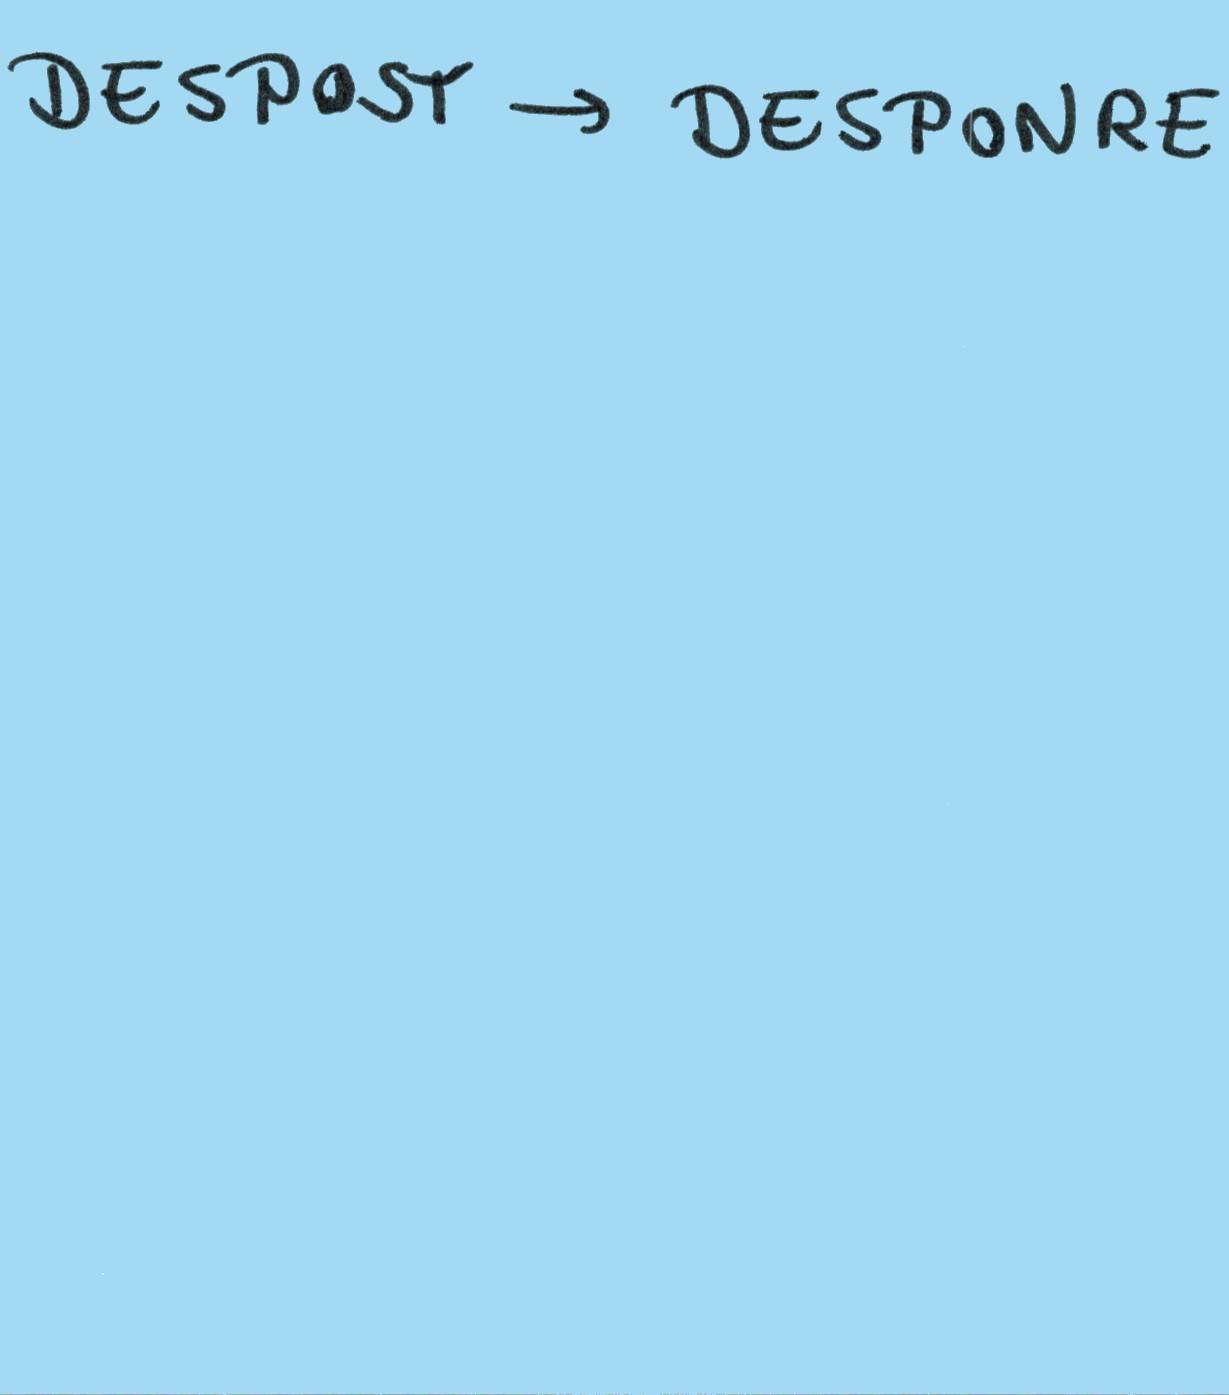 DESPOST → DESPONRE